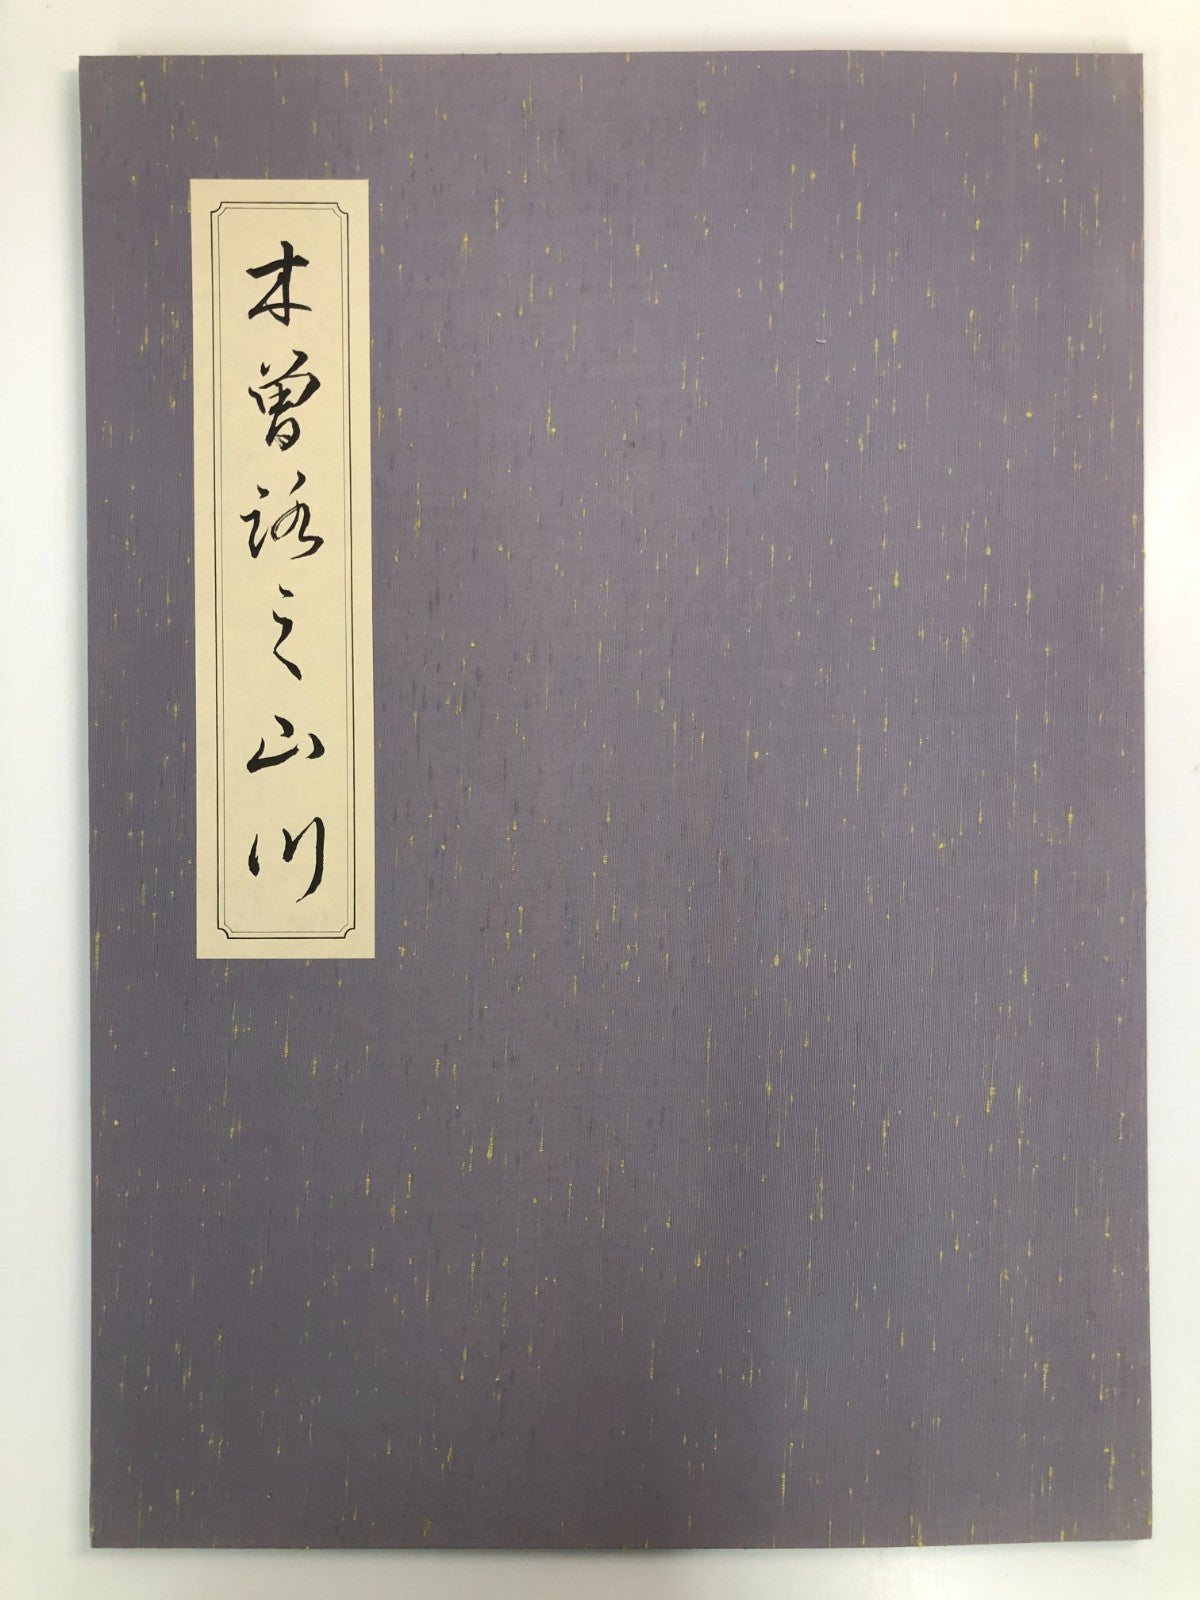 木曽路之山川